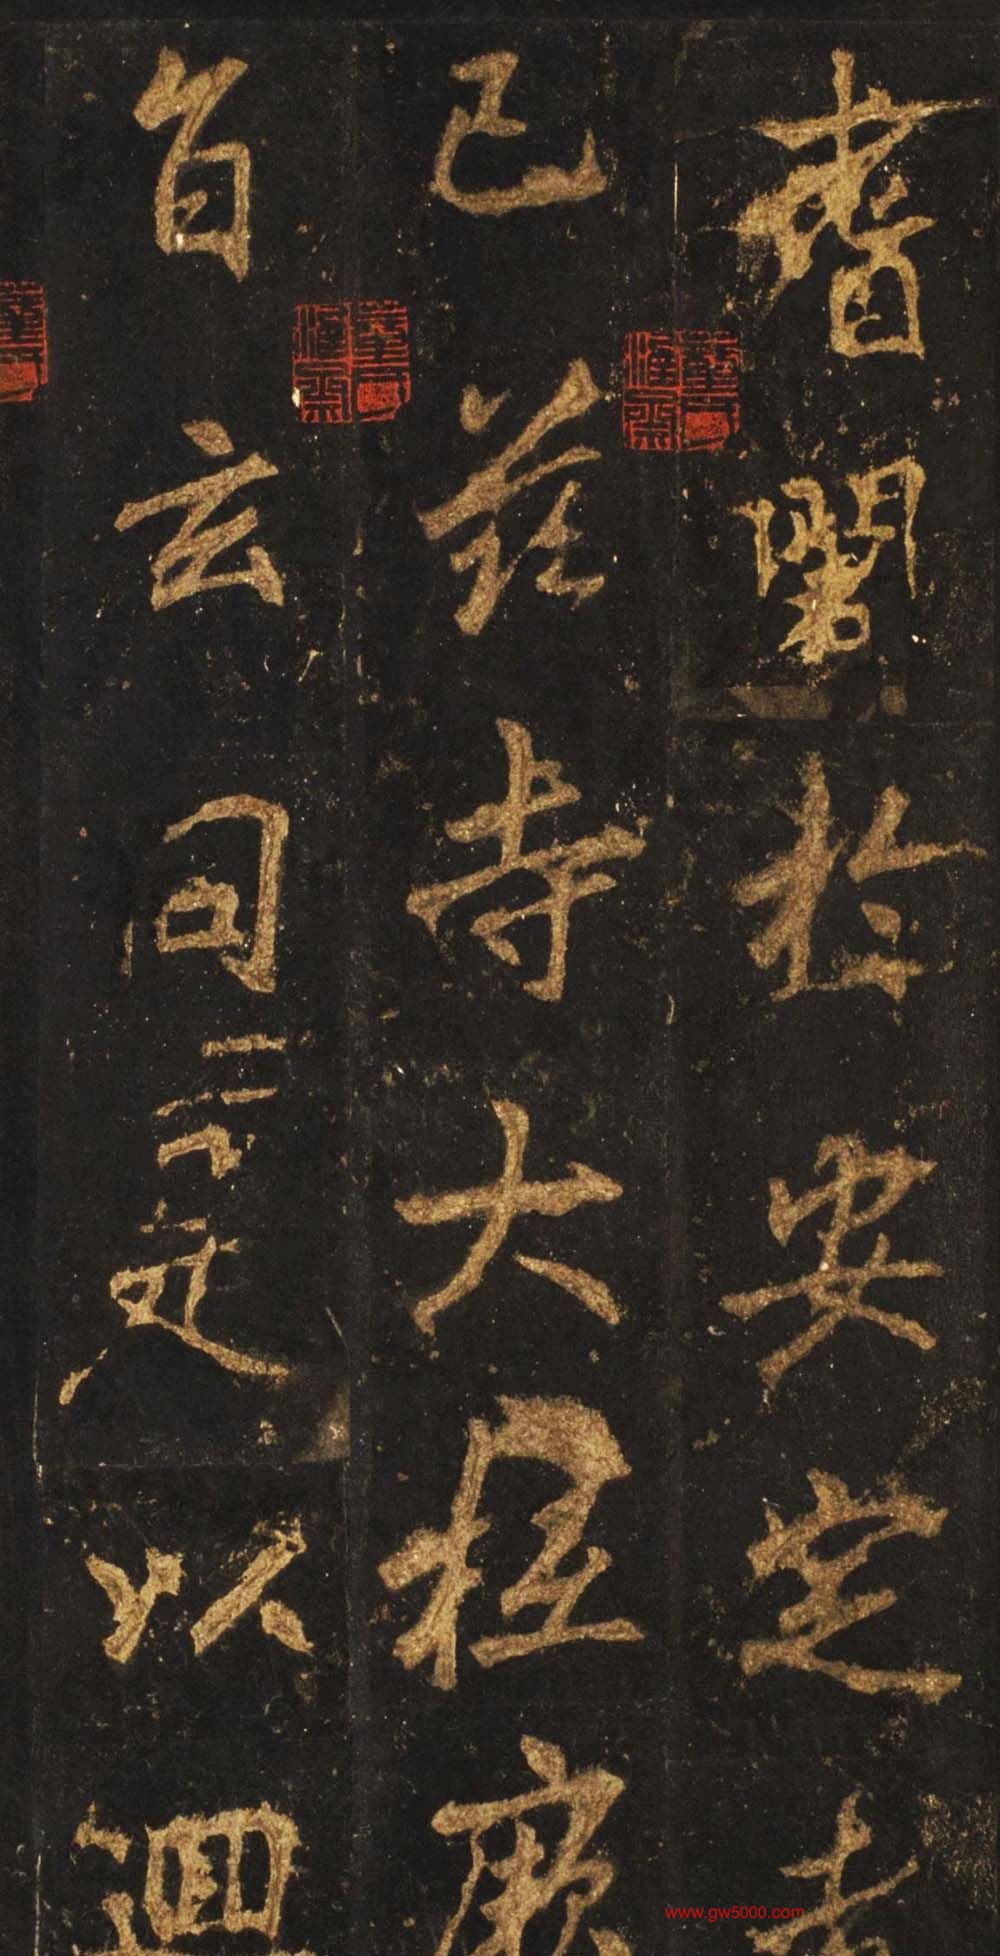 耆闍於安定者
已茲寺大抵厥
旨玄同是以迴
www.gw5000.com